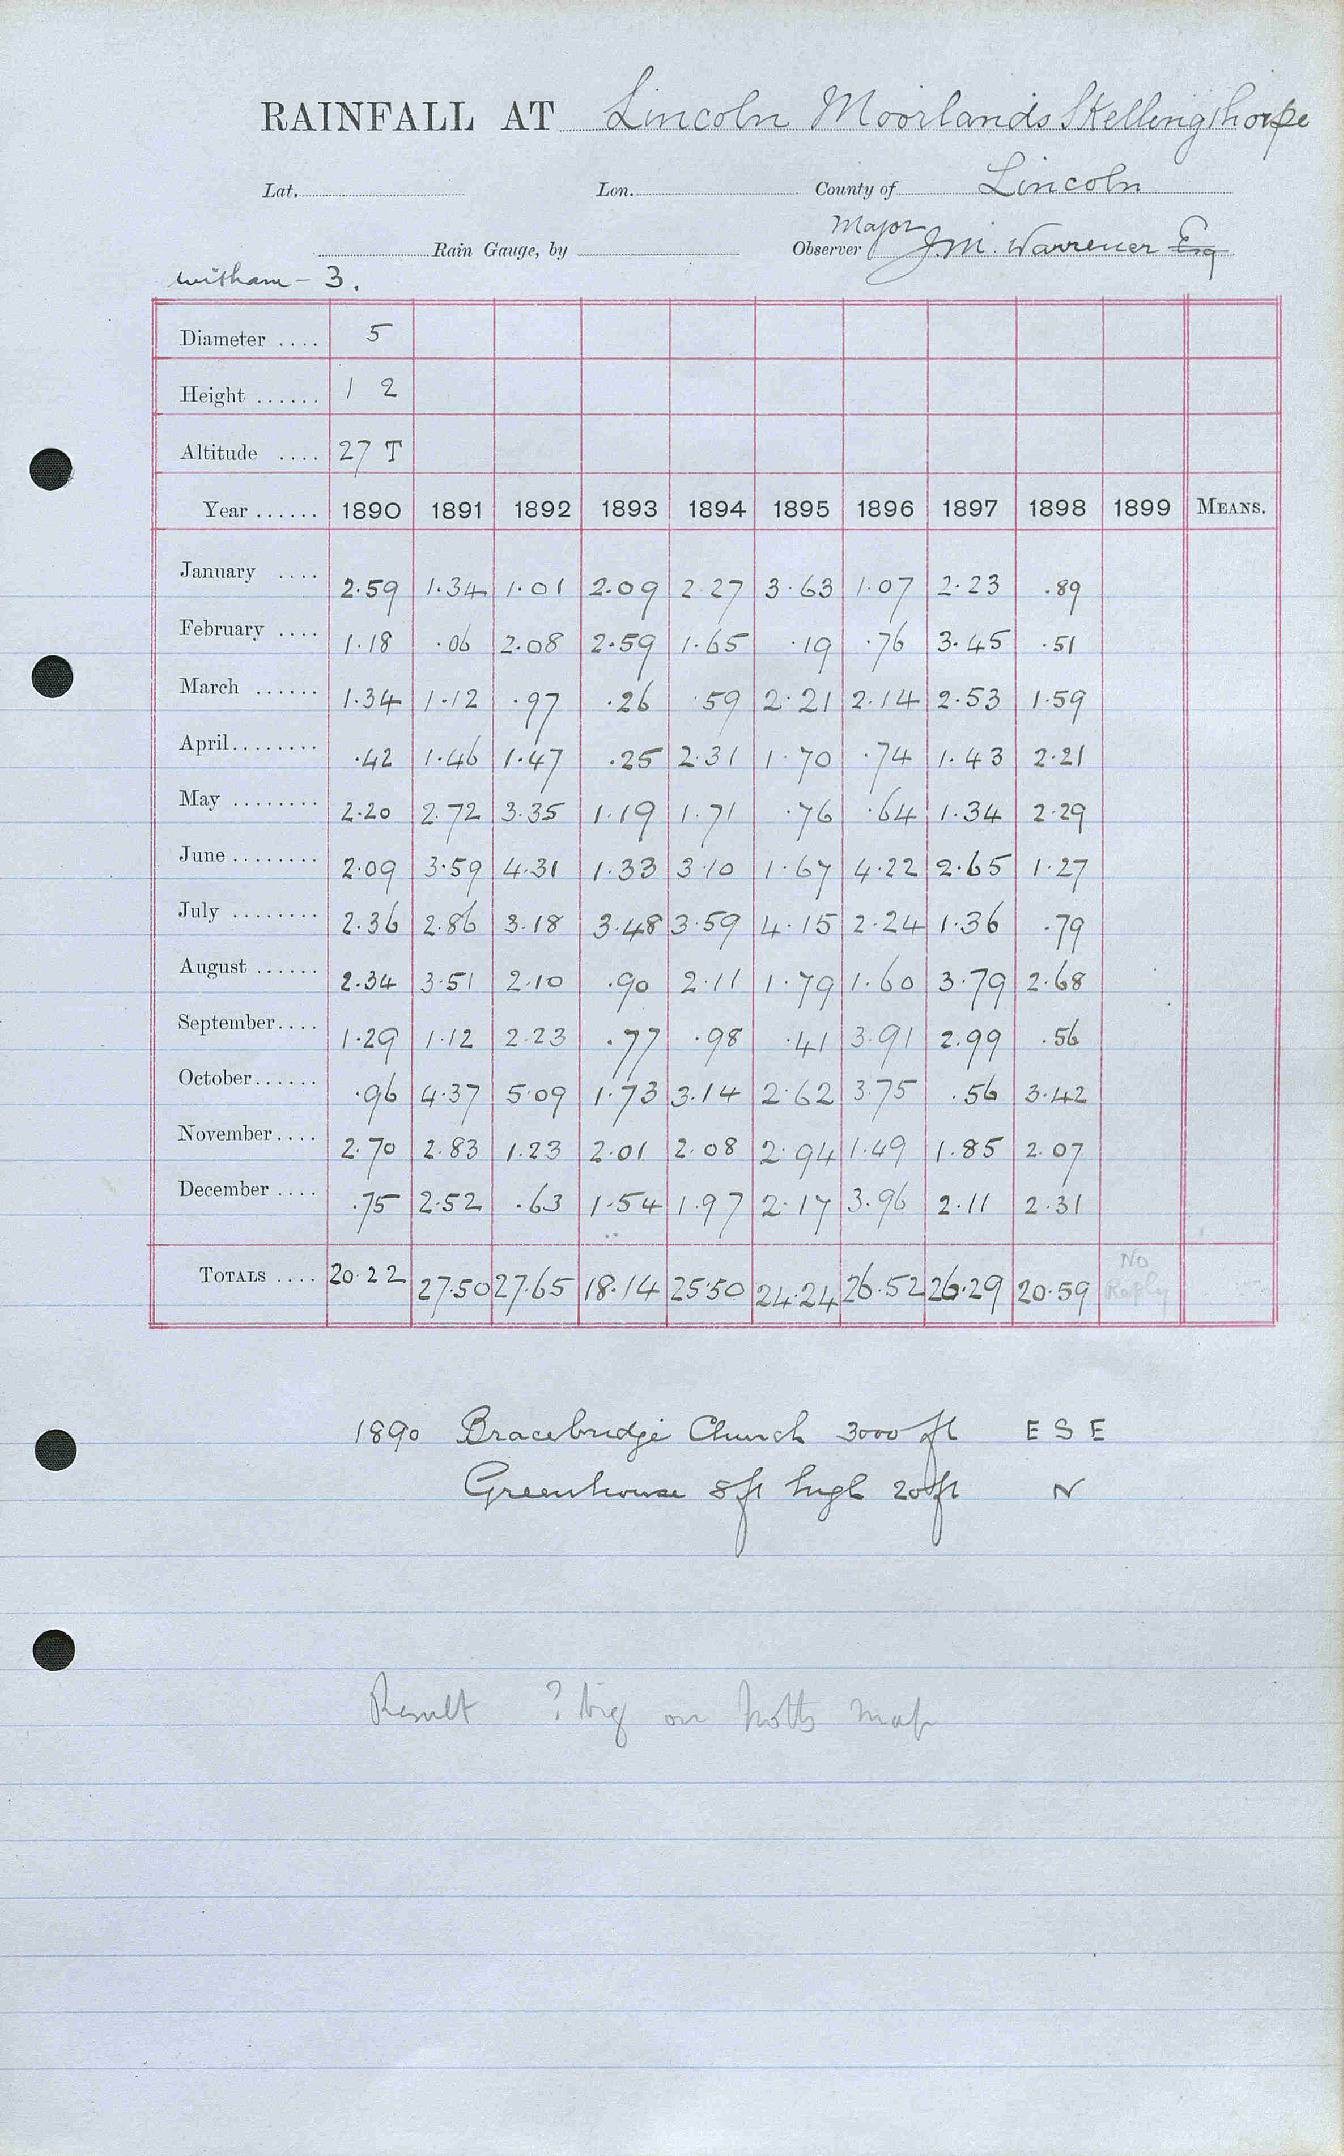 RAINFALL AT Lincoln Moorlands Skellingthorpe
Lat. Lon. County of Lincoln
Major
Rain Gauge, by Observer J.M. Warrener Esq
Witham - 3.
Diameter .... 5
Height ...... 1 2
Altitude .... 27 T
Year ...... 1890 1891 1892 1893 1894 1895 1896 1897 1898 1899 MEANS.
January .... 2.59 1.34 1.01 2.09 2.27 3.63 1.07 2.23 .89
February .... 1.18 .06 2.08 2.59 1.65 .19 .76 3.45 .51
March ...... 1.34 1.12 .97 .26 .59 2.21 2.14 2.53 1.59
April ........ .42 1.46 1.47 .25 2.31 1.70 .74 1.43 2.21
May ........ 2.20 2.72 3.35 1.19 1.71 .76 .64 1.34 2.29
June ........ 2.09 3.59 4.31 1.33 3.10 1.67 4.22 2.65 1.27
July ........ 2.36 2.86 3.18 3.48 3.59 4.15 2.24 1.36 .79
August ...... 2.34 3.51 2.10 .90 2.11 1.79 1.60 3.79 2.68
September .... 1.29 1.12 2.23 .77 .98 .41 3.91 2.99 .56
October ...... .96 4.37 5.09 1.73 3.14 2.62 3.75 .56 3.42
November .... 2.70 2.83 1.23 2.01 2.08 2.94 1.49 1.85 2.07
December .... .75 2.52 .63 1.54 1.97 2.17 3.96 2.11 2.31
TOTALS .... 20.22 27.50 27.65 18.14 25.50 24.24 26.52 26.29 20.59 No Reply
1890 Bracebridge Church 3000 ft E S E
Greenhouse 8ft high 20ft N
Result ? big on Notts map